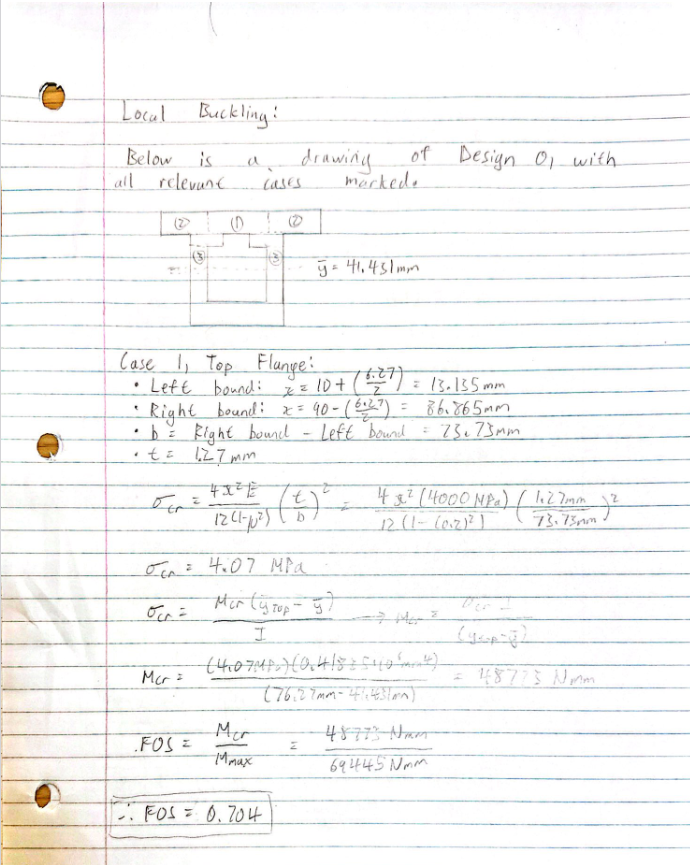 Local Buckling:
Below is a drawing of Design 0, with
all relevant cases marked.
② ① ②
③ ③
ȳ = 41.431mm
Case 1, Top Flange:
• Left bound: x = 10 + (6.27/2) = 13.135mm
• Right bound: x = 90 - (6.27/2) = 86.865mm
• b = Right bound - Left bound = 73.73mm
• t = 1.27mm
σcr = 4π²E / 12(1-μ²) (t/b)² = 4π²(4000 MPa) / 12(1-(0.2)²) (1.27mm / 73.73mm)²
σcr = 4.07 MPa
σcr = Mcr(ytop - ȳ) / I → Mcr = σcr I / (ytop-ȳ)
Mcr = (4.07MPa)(0.41835·10⁶mm⁴) / (76.27mm-41.431mm) = Nmm
FOS = Mcr / Mmax = 48773 Nmm / 69445 Nmm
∴ FOS = 0.704